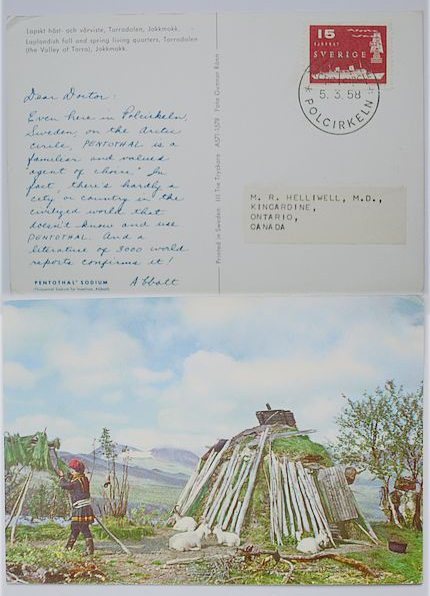 Lapskt höst- och vårviste, Tarradalen, Jokkmokk.
Laplandish fall and spring living quarters, Tarradalen
(the Valley of Tarra), Jokkmokk.
Dear Doctor:
Even here in Polcirkeln,
Sweden, on the Arctic
circle, PENTOTHAL is a
familiar and valued
"agent of choice." In
fact, there's hardly a
city or country in the
civilized world that
doesn't know and use
PENTOTHAL. And a
literature of 3000 world
reports confirms it!
Abbott
PENTOTHAL® SODIUM
(Thiopental Sodium for Injection, Abbott)
Printed in Sweden
Ill Tre Tryckare
Foto Gunnar Rönn
15
SVERIGE
5.3.58
POLCIRKELN
M. R. HELLIWELL, M.D.,
KINCARDINE,
ONTARIO,
CANADA